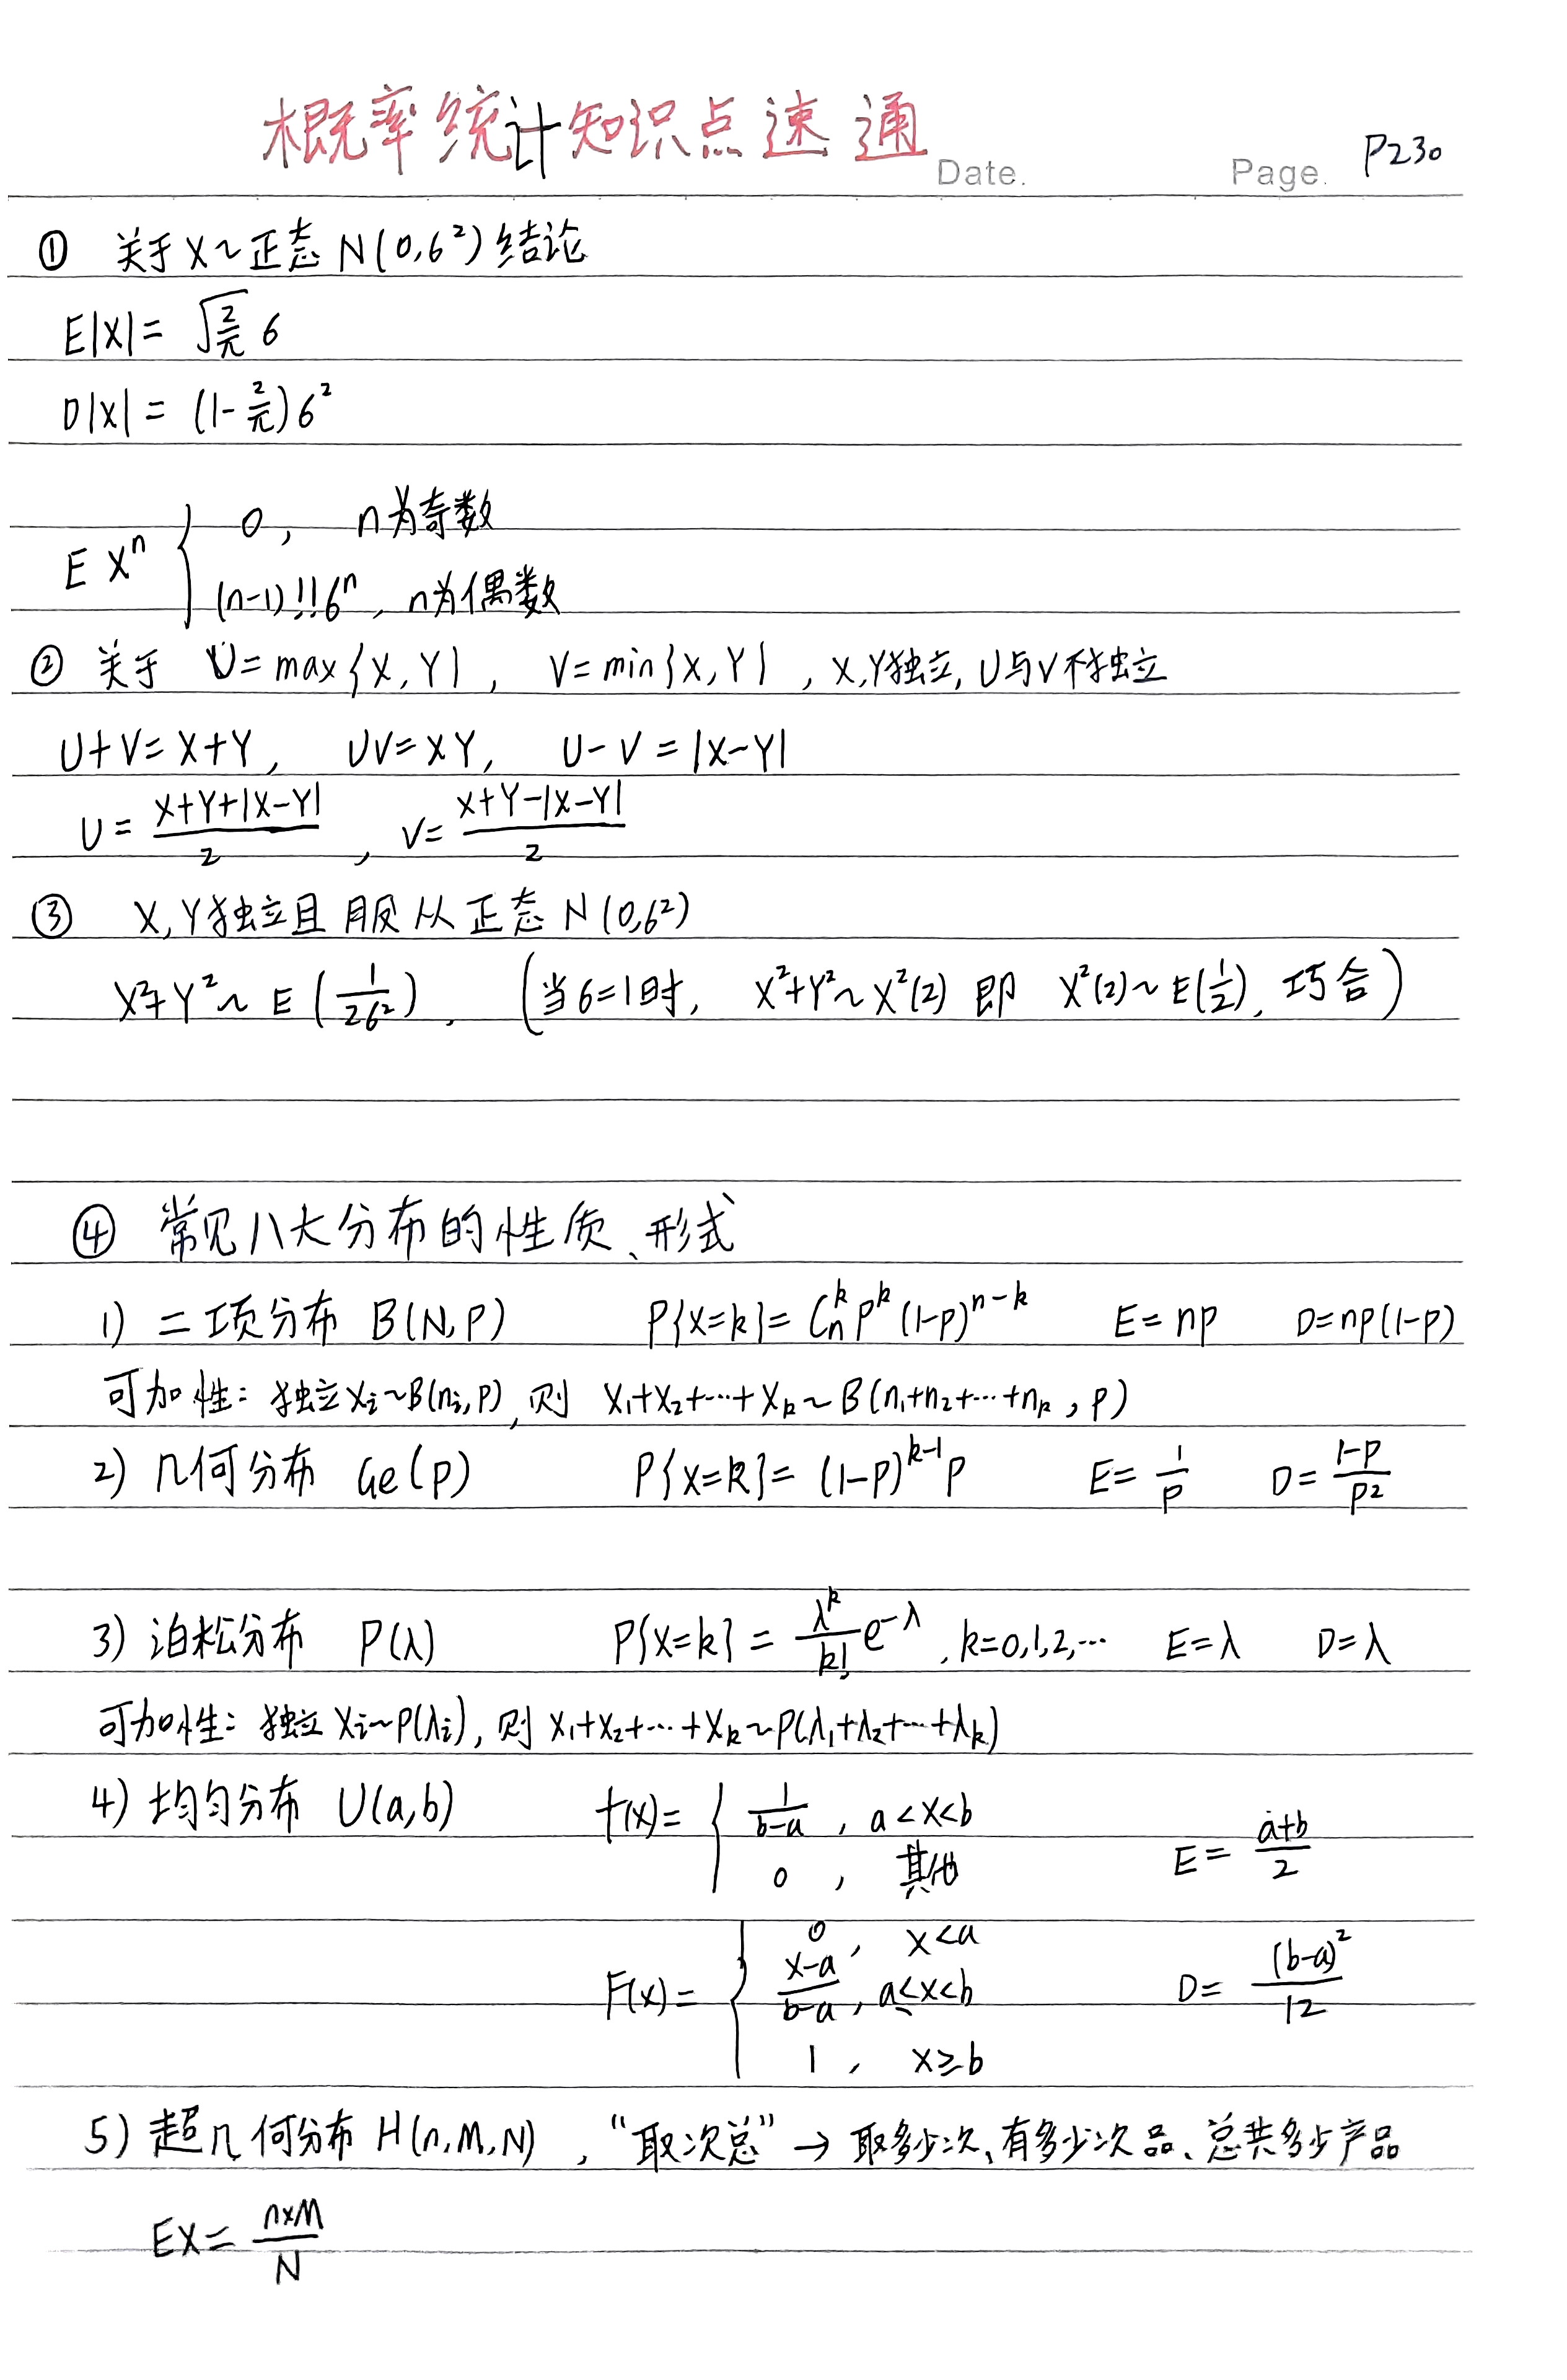 概率统计知识点速通
Date. Page. P230
① 关于X~正态N(0,6²)结论
E|X|= √(2/π) 6
D|X|= (1-2/π)6²
EXⁿ { 0, n为奇数
(n-1)!!6ⁿ, n为偶数
② 关于 U=max{X,Y}, V=min{X,Y}, X,Y独立, U与V不独立
U+V=X+Y, UV=XY, U-V=|X-Y|
U= (X+Y+|X-Y|)/2, V= (X+Y-|X-Y|)/2
③ X,Y独立且服从正态N(0,6²)
X²+Y²~E(1/26²). (当6=1时, X²+Y²~X²(2) 即 X²(2)~E(1/2), 巧合)
④ 常见八大分布的性质、形式
1) 二项分布 B(N,P) P{X=k}=Cₙᵏ Pᵏ (1-P)ⁿ⁻ᵏ E=np D=np(1-P)
可加性: 独立Xᵢ~B(nᵢ,P), 则 X₁+X₂+…+Xₖ~B(n₁+n₂+…+nₖ, P)
2) 几何分布 Ge(P) P{X=k}=(1-P)ᵏ⁻¹P E=1/P D=(1-P)/P²
3) 泊松分布 P(λ) P{X=k}= (λᵏ/k!)e^(-λ), k=0,1,2,… E=λ D=λ
可加性: 独立Xᵢ~P(λᵢ), 则X₁+X₂+…+Xₖ~P(λ₁+λ₂+…+λₖ)
4) 均匀分布 U(a,b) f(x)= { 1/(b-a), a<x<b
0, 其他 E= (a+b)/2
F(x)= { 0, x<a
(x-a)/(b-a), a≤x<b D= (b-a)²/12
1, x≥b
5) 超几何分布 H(n,M,N), “取次总” → 取多少次、有多少次品、总共多少产品
EX= (n×M)/N